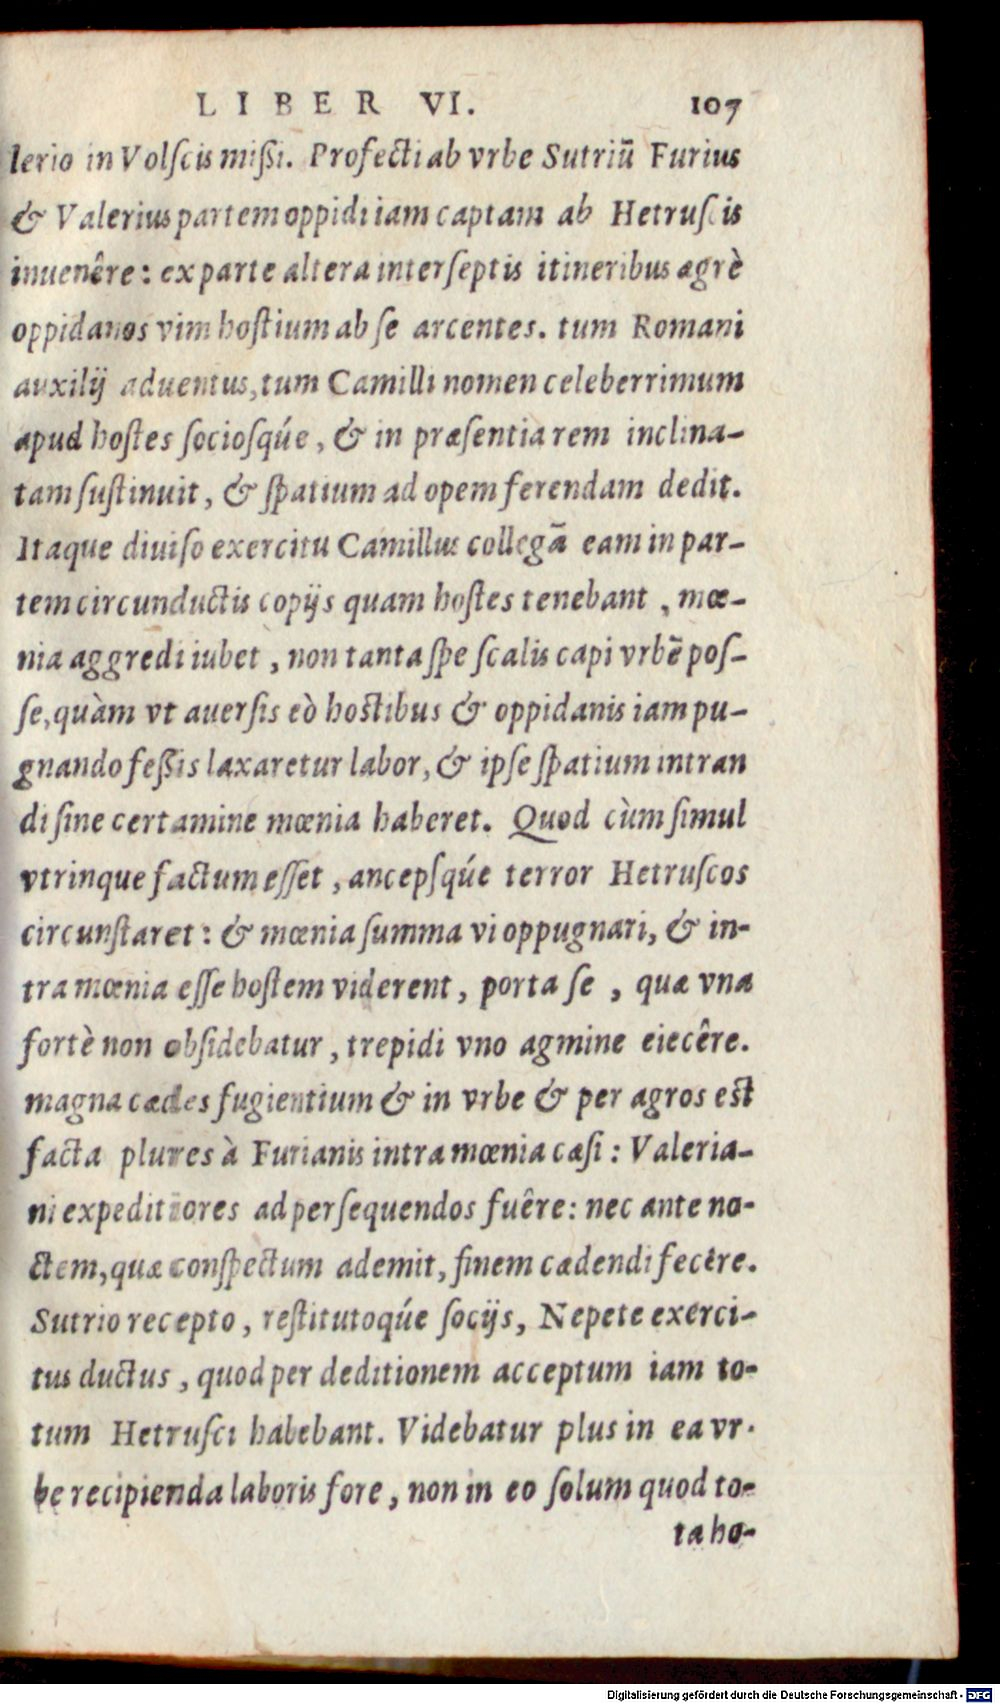 LIBER VI. 107
lerio in Volscis mißi. Profecti ab vrbe Sutriū Furius
& Valerius partem oppidi iam captam ab Hetruscis
inuenêre: ex parte altera interseptis itineribus ægrè
oppidanos vim hostium ab se arcentes. tum Romani
auxilij aduentus, tum Camilli nomen celeberrimum
apud hostes sociosq́ue, & in præsentia rem inclina-
tam sustinuit, & spatium ad opem ferendam dedit.
Itaque diuiso exercitu Camillus collegā eam in par-
tem circunductis copijs quam hostes tenebant, mœ-
nia aggredi iubet, non tanta spe scalis capi vrbē pos-
se, quàm vt auersis eò hostibus & oppidanis iam pu-
gnando feßis laxaretur labor, & ipse spatium intran
di sine certamine mœnia haberet. Quod cùm simul
vtrinque factum esset, ancepsq́ue terror Hetruscos
circunstaret: & mœnia summa vi oppugnari, & in-
tra mœnia esse hostem viderent, porta se, quæ vna
fortè non obsidebatur, trepidi vno agmine eiecêre.
magna cædes fugientium & in vrbe & per agros est
facta plures à Furianis intra mœnia cæsi: Valeria-
ni expeditiores ad persequendos fuêre: nec ante no-
ctem, quæ conspectum ademit, finem cædendi fecêre.
Sutrio recepto, restitutoq́ue socijs, Nepete exerci-
tus ductus, quod per deditionem acceptum iam to-
tum Hetrusci habebant. Videbatur plus in ea vr-
be recipienda laboris fore, non in eo solum quod to-
ta ho-
Digitalisierung gefördert durch die Deutsche Forschungsgemeinschaft - DFG